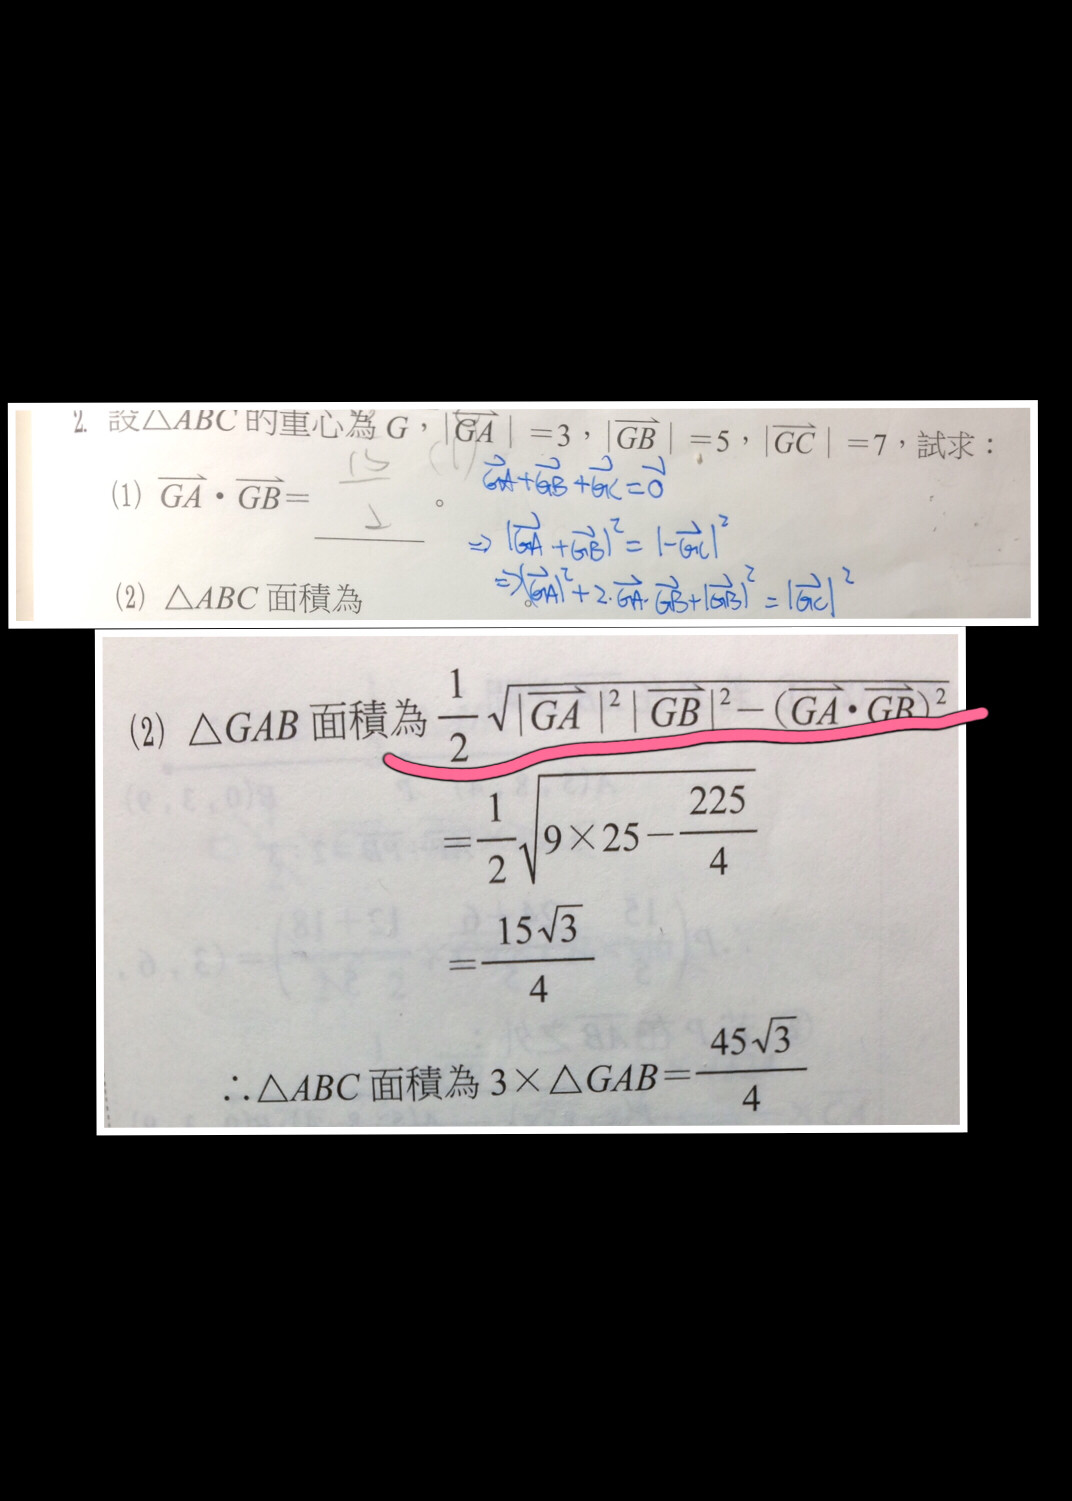 2. 設△ABC 的重心為 G，|GA| =3，|GB| =5，|GC| =7，試求：
(1) GA・GB= 15/2 。
GA+GB+GC=0
⇒ |GA+GB|²=|-GC|²
⇒ |GA|²+2・GA・GB+|GB|²=|GC|²
(2) △ABC 面積為 。
(2) △GAB 面積為 1/2 √|GA|²|GB|²−(GA・GB)²
=1/2 √9×25−225/4
=15√3/4
∴△ABC 面積為 3×△GAB=45√3/4